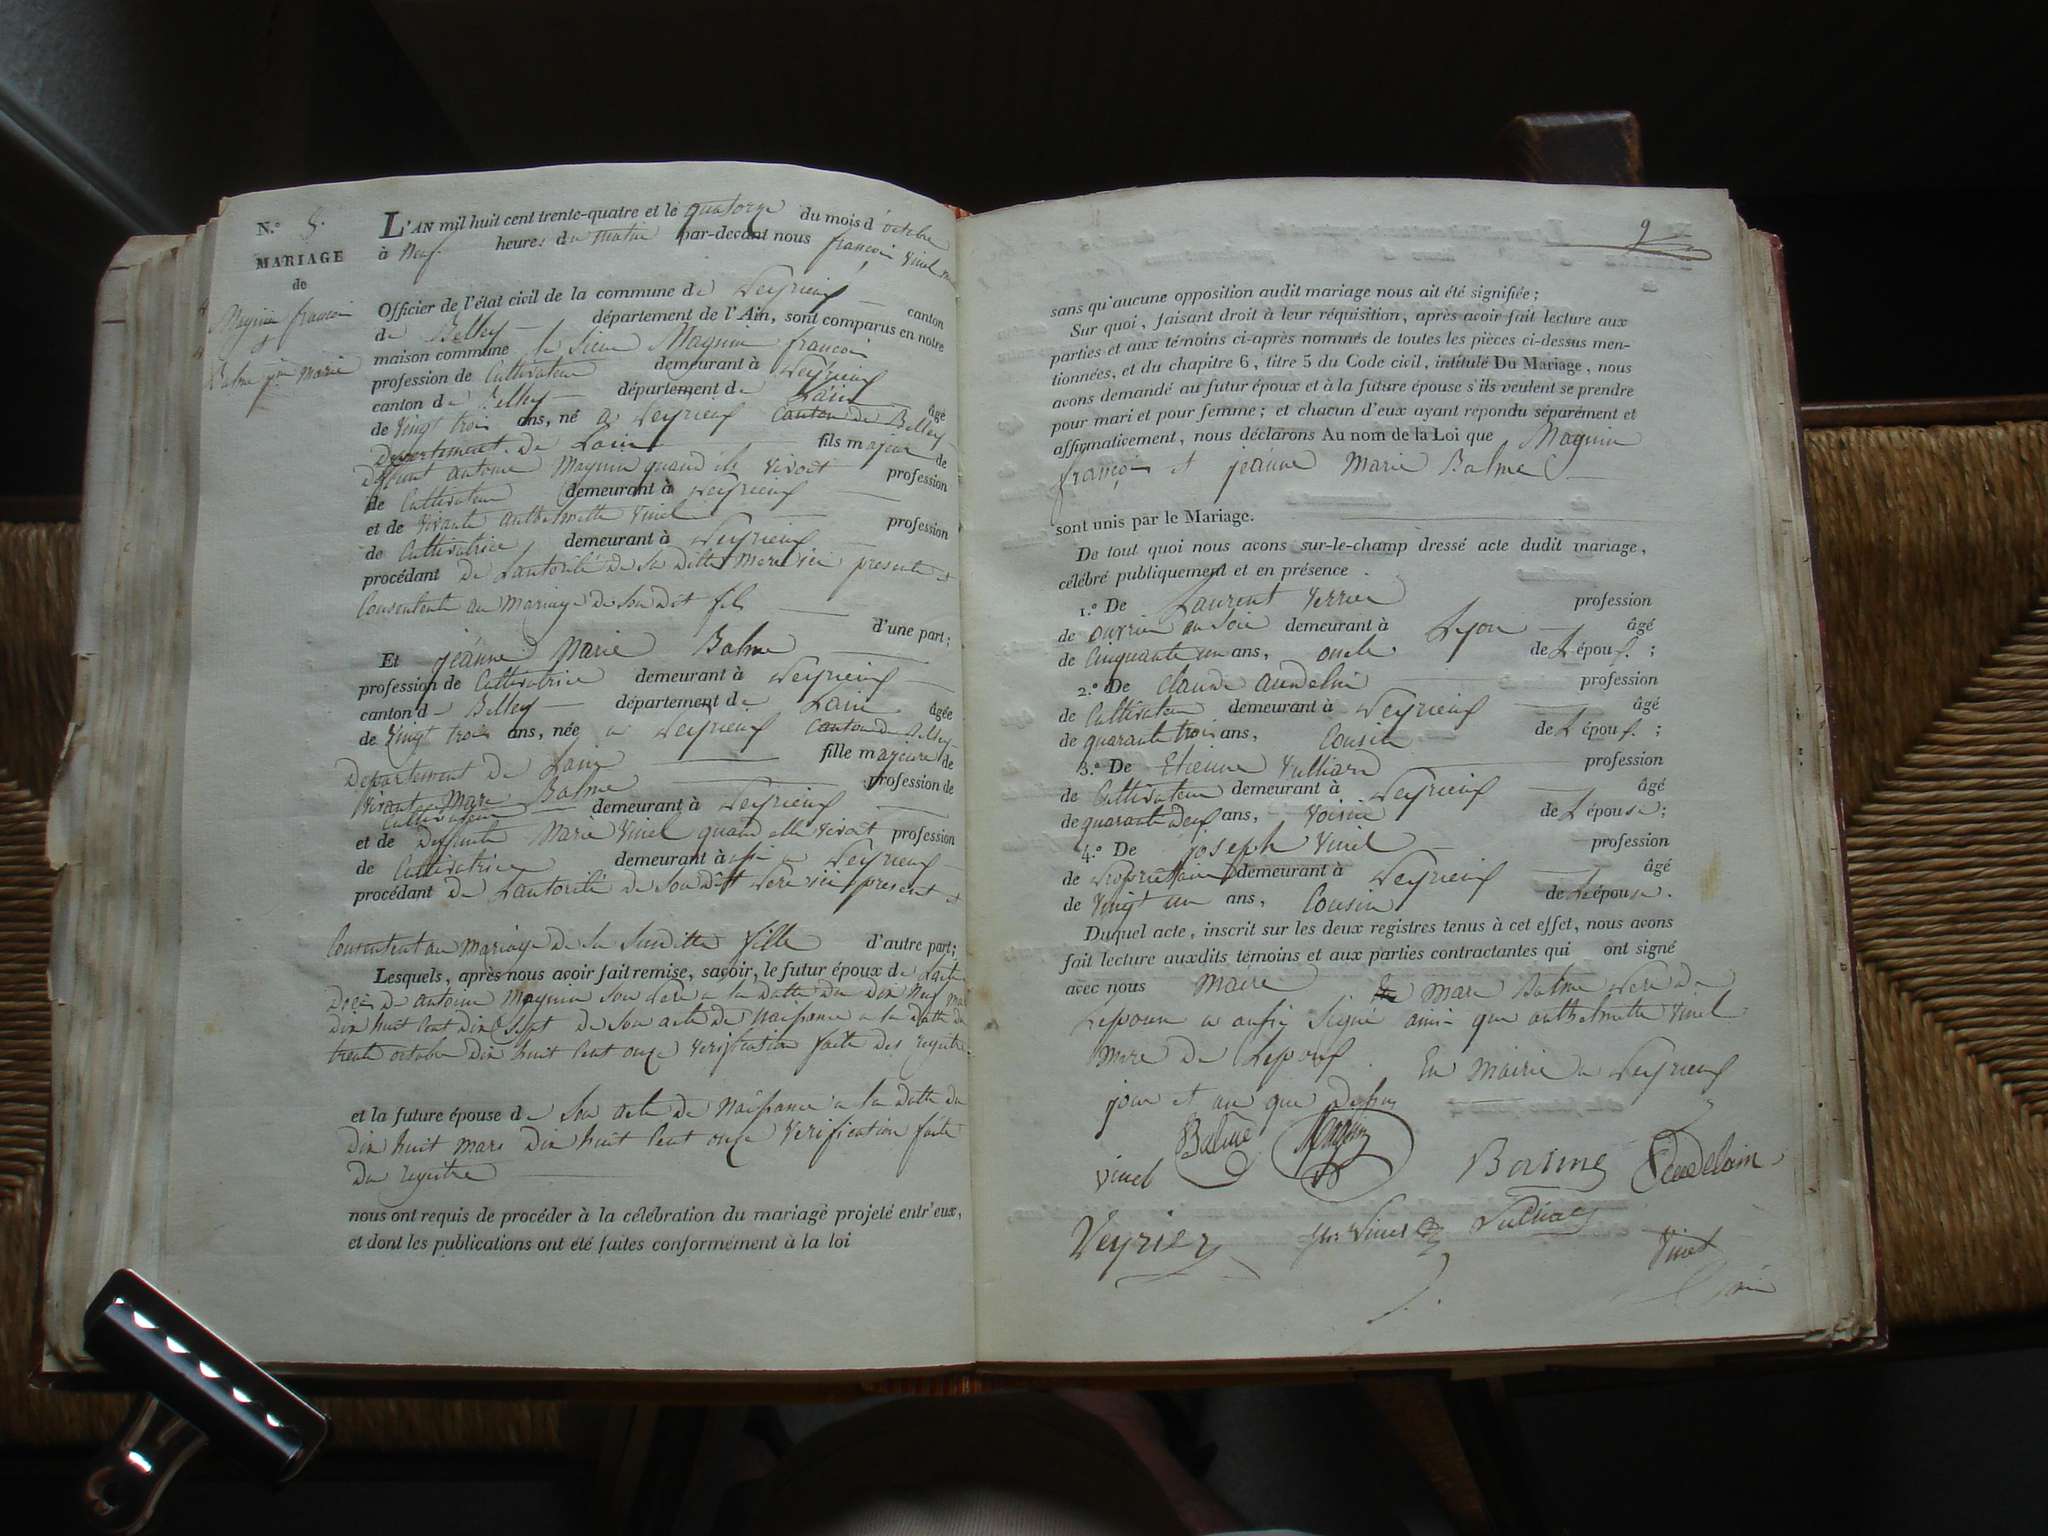 N.° 8.
MARIAGE
de
Magnin françois
et
Balme jne marie
L'AN mil huit cent trente-quatre et le quatorze du mois d'octobre
à Neuf heures du matin par-devant nous françois Vinel
Officier de l'état civil de la commune de Peyrieux canton
de Belley département de l'Ain, sont comparus en notre
maison commune le Sieur Magnin françois
profession de Cultivateur demeurant à Peyrieux
canton de Belley département de Lain âgé
de Vingt trois ans, né a Peyrieux Canton de Belley
Departement de Lain fils majeur de
Deffunt antoine Magnin quand ils Vivoit profession
de Cultivateur demeurant à Peyrieux
et de Vivante anthelmette Vinel profession
de Cultivatrice demeurant à Peyrieux
procédant de Lautorité de sa ditte Mere ici presente et
Consentente au Mariage de son dit fils
d'une part;
Et jeanne Marie Balme
profession de Cultivatrice demeurant à Peyrieux
canton de Belley département de Lain âgée
de Vingt trois ans, née a Peyrieux Canton de Belley
Departement de Lain fille majeure de
Vivant Marc Balme profession de
Cultivateur demeurant à Peyrieux
et de Deffunte Marie Vinel quand elle Vivoit profession
de Cultivatrice demeurant à aussi a Peyrieux
procédant de Lautorité de son dit Pere ici present et
Consentent au Mariage de sa susditte fille d'autre part;
Lesquels, après nous avoir fait remise, savoir, le futur époux de Lacte
Décè de antoine Magnin son Pere a la Datte du Dix Neuf mai
Dix huit Cent Dix Sept de son acte de Naissance a la Datte du
trente octobre Dix huit Cent onze Verification faite des registre
et la future épouse de son acte de Naissance a la Datte du
Dix huit mars Dix huit Cent onze Verification faite
du registre
nous ont requis de procéder à la célébration du mariage projeté entr'eux,
et dont les publications ont été faites conformément à la loi
9
sans qu'aucune opposition audit mariage nous ait été signifiée;
Sur quoi, faisant droit à leur réquisition, après avoir fait lecture aux
parties et aux témoins ci-après nommés de toutes les pièces ci-dessus men-
tionnées, et du chapitre 6, titre 5 du Code civil, intitulé Du Mariage, nous
avons demandé au futur époux et à la future épouse s'ils veulent se prendre
pour mari et pour femme; et chacun d'eux ayant répondu séparément et
affirmativement, nous déclarons Au nom de la Loi que Magnin
françois et jeanne Marie Balme
sont unis par le Mariage.
De tout quoi nous avons sur-le-champ dressé acte dudit mariage,
célébré publiquement et en présence
1.° De Laurent Verrier profession
de ouvrier en Soie demeurant à Lyon âgé
de Cinquante un ans, oncle de L époux;
2.° De Claude andelin profession
de Cultivateur demeurant à Peyrieux âgé
de quarante trois ans, Cousin de L époux;
3.° De Etienne Vulliard profession
de Cultivateur demeurant à Peyrieux âgé
de quarante Deux ans, Voisin de L épouse;
4.° De joseph Vinel profession
de Proprietaire demeurant à Peyrieux âgé
de Vingt un ans, Cousin de L épouse.
Duquel acte, inscrit sur les deux registres tenus à cet effet, nous avons
fait lecture auxdits témoins et aux parties contractantes qui ont signé
avec nous Maire Marc Balme Pere de
Lepouse a aussi Signé ainsi que anthelmette Vinel
Mere de Lepoux En Mairie a Peyrieux
jour et an que Dessus
Vinel Balme Magnin Balme
Veyrier Vinel